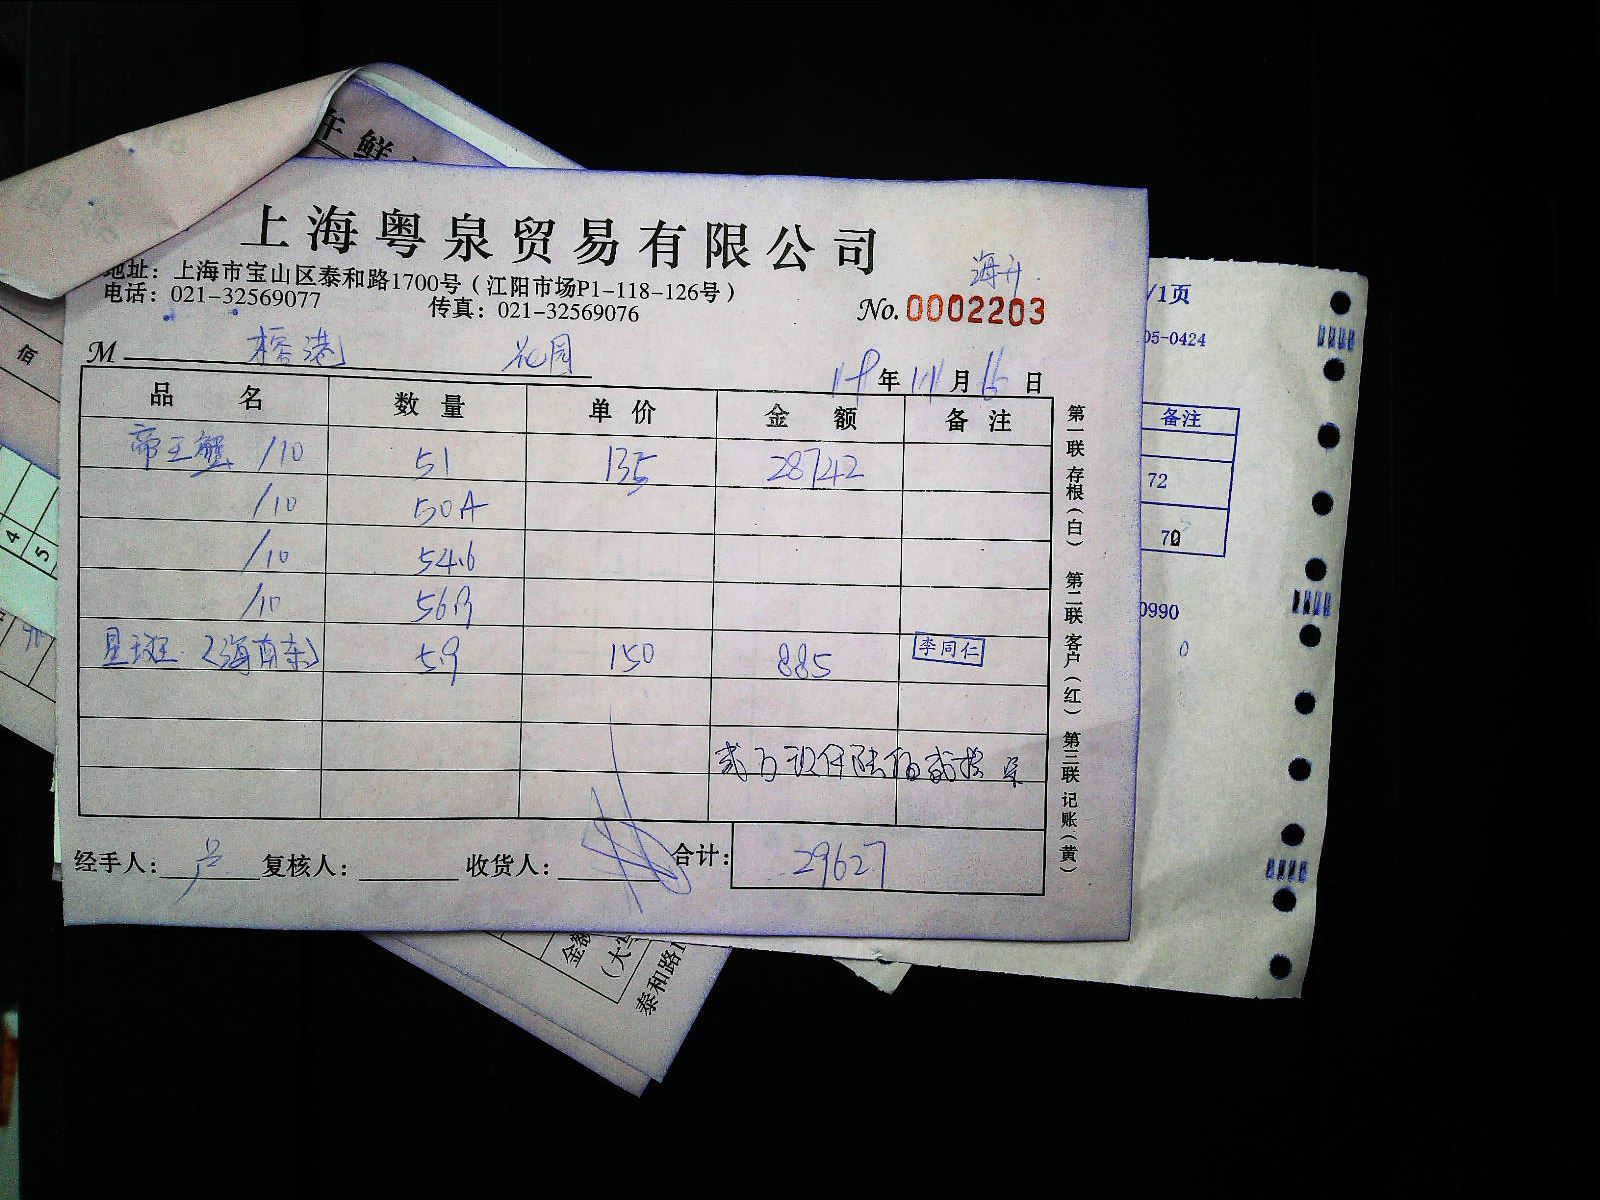 上海粤泉贸易有限公司
地址：上海市宝山区泰和路1700号（江阳市场P1-118-126号）
电话：021-32569077 传真：021-32569076
海升
No. 0002203
M 榕港 花园
年 月 16 日
品名 数量 单价 金额 备注
帝王蟹 /10 51 135 28742
/10
/10 54.6
/10
星斑（海南东） 5.9 150 885 李同仁
合计：29627
经手人：卢 复核人： 收货人：
第一联 存根（白） 第二联 客户（红） 第三联 记账（黄）
/1页
05-0424
备注
72
70
0990
0
鲜
佰
4
5
金额
（大写
泰和路1